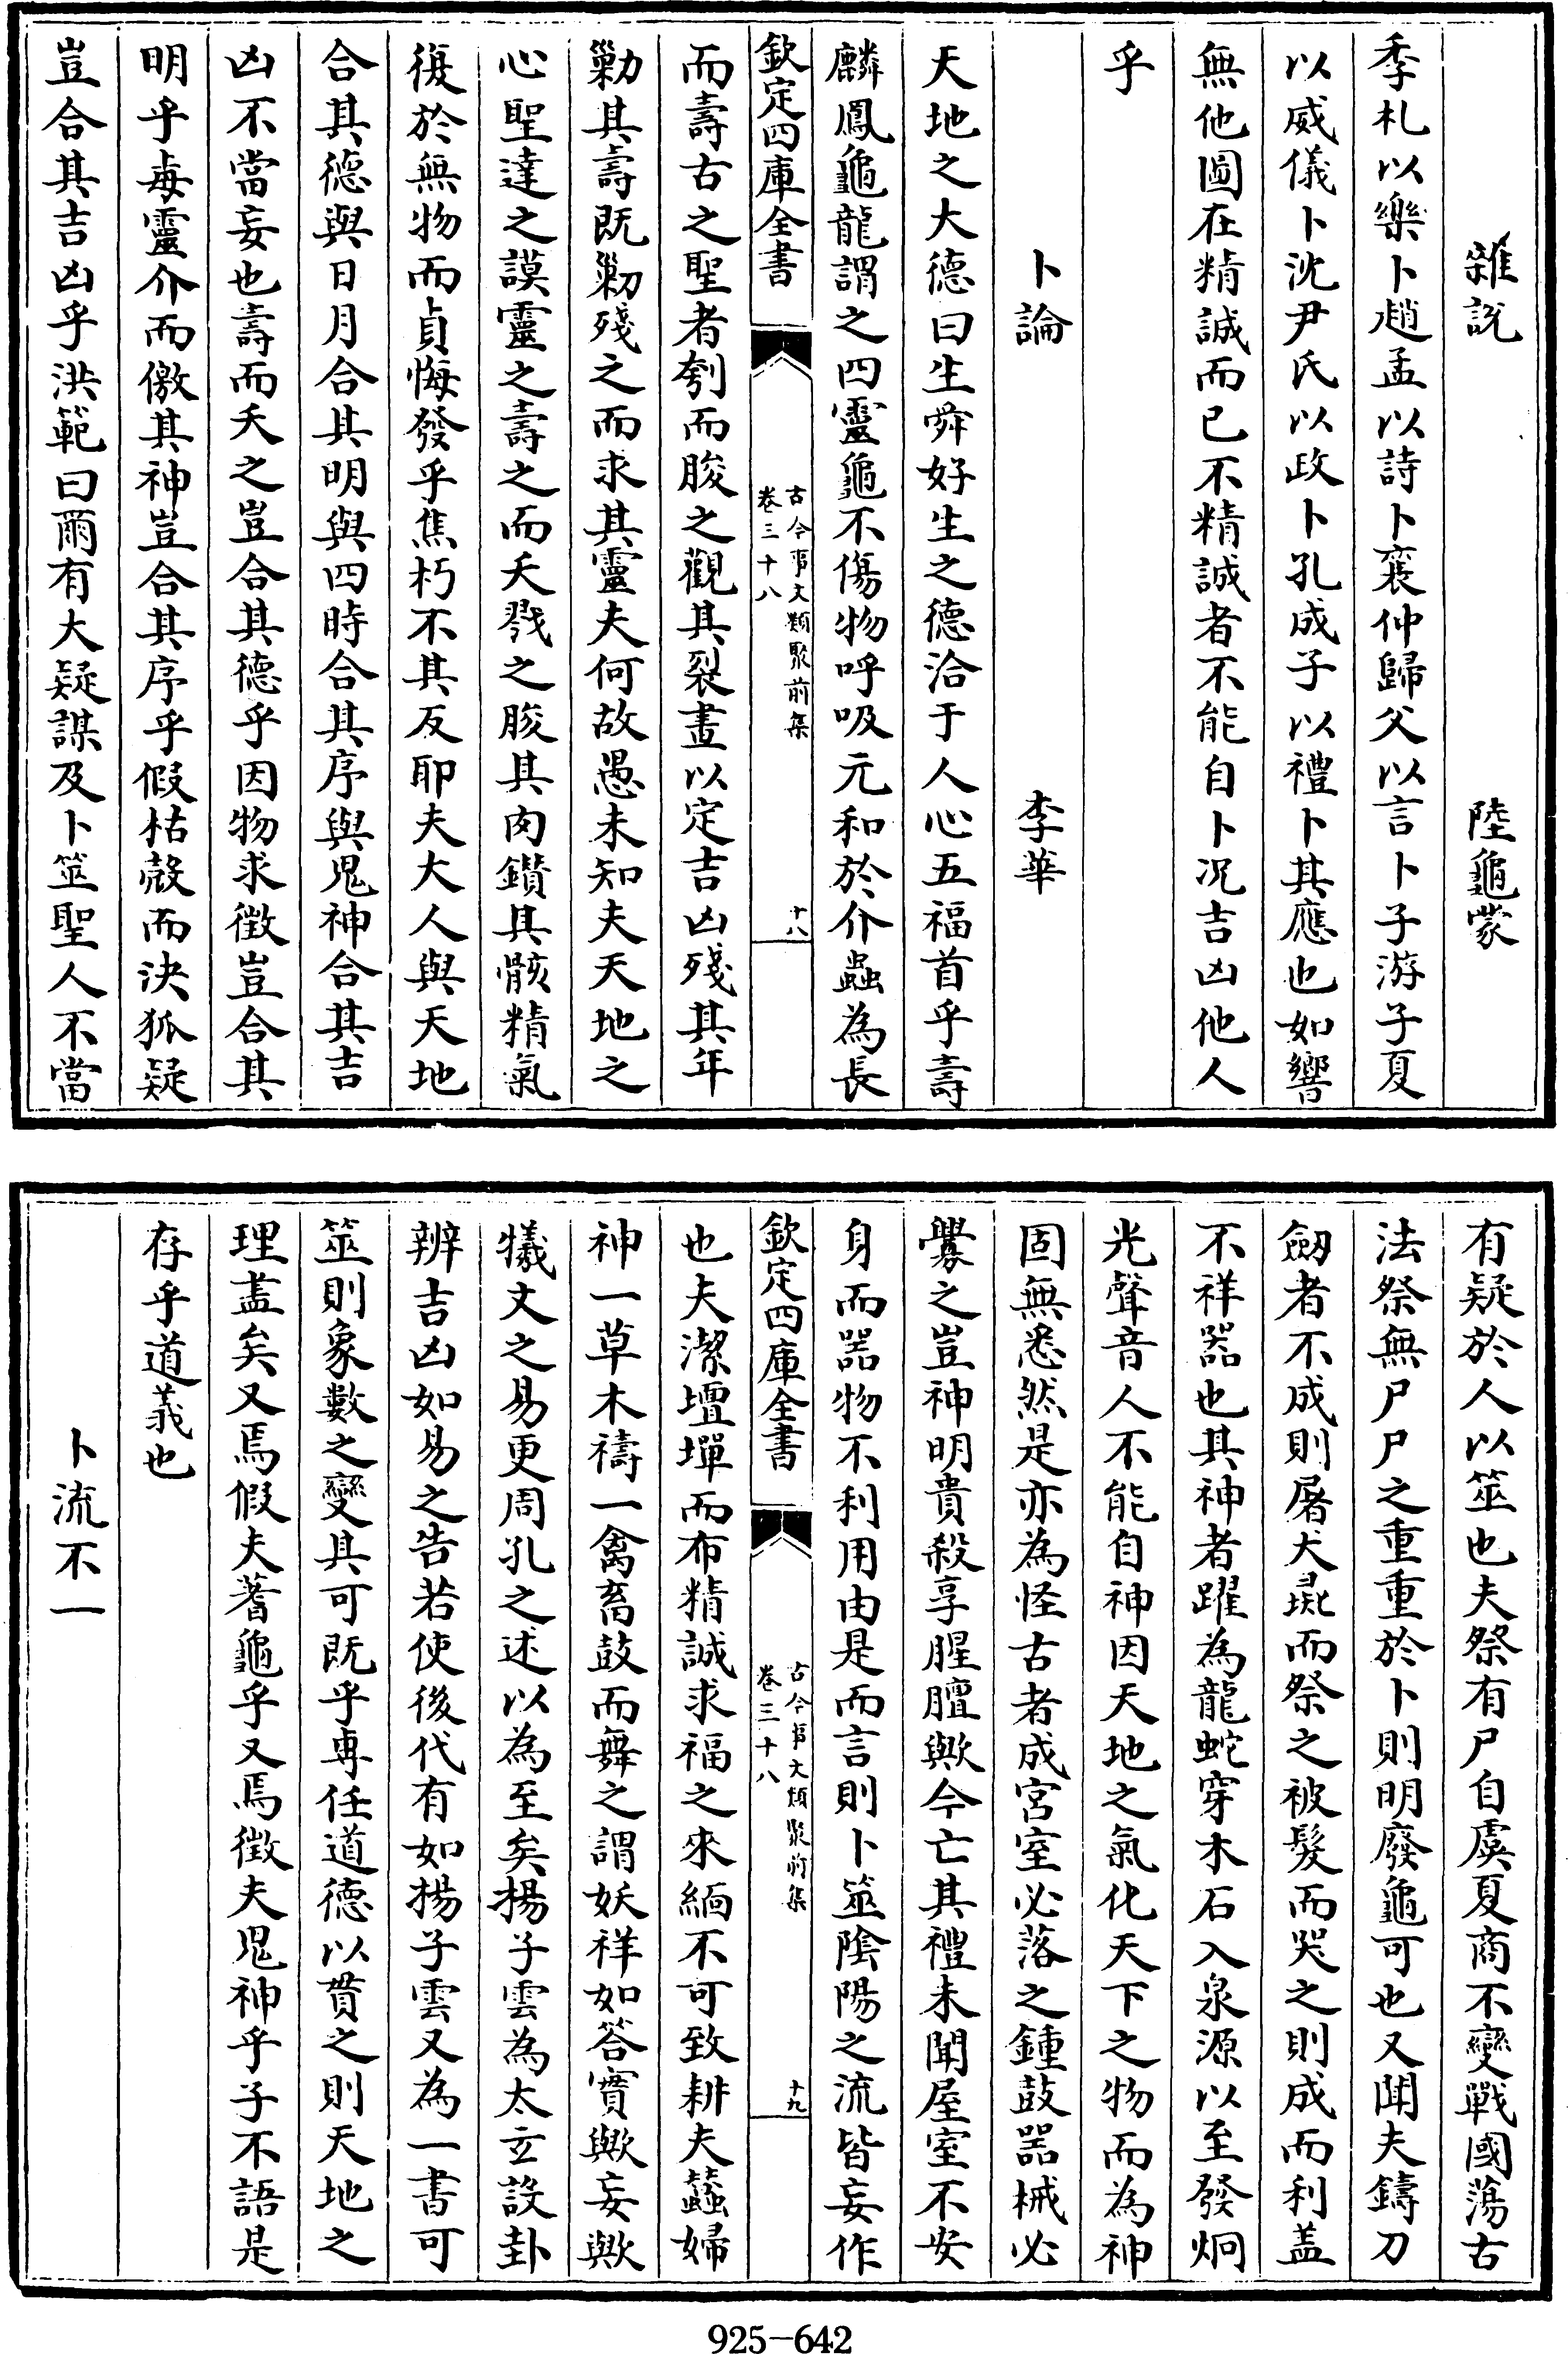 雜說 陸龜蒙
季札以樂卜趙孟以詩卜襄仲歸父以言卜子游子夏
以威儀卜沈尹氏以政卜孔成子以禮卜其應也如響
無他圖在精誠而已不精誠者不能自卜况吉凶他人
乎
卜論 李華
天地之大德曰生舜好生之德洽于人心五福首乎壽
麟鳳龜龍謂之四靈龜不傷物呼吸元和於介蟲為長
欽定四庫全書 古今事文類聚前集 卷三十八 十八
而壽古之聖者刳而朘之觀其裂畫以定吉凶殘其年
勦其壽既勦殘之而求其靈夫何故愚未知夫天地之
心聖達之謨靈之壽之而夭戮之朘其肉鑽其骸精氣
復於無物而貞悔發乎焦朽不其反耶夫大人與天地
合其德與日月合其明與四時合其序與鬼神合其吉
凶不當妄也壽而夭之豈合其德乎因物求徵豈合其
明乎毒靈介而徼其神豈合其序乎假枯殼而決狐疑
豈合其吉凶乎洪範曰爾有大疑謀及卜筮聖人不當
有疑於人以筮也夫祭有尸自虞夏商不變戰國蕩古
法祭無尸尸之重重於卜則明廢龜可也又聞夫鑄刀
劒者不成則屠犬彘而祭之被髮而哭之則成而利盖
不祥器也其神者躍為龍蛇穿木石入泉源以至發炯
光聲音人不能自神因天地之氣化天下之物而為神
固無悉然是亦為怪古者成宮室必落之鍾鼓器械必
釁之豈神明貴殺享腥膻歟今亡其禮未聞屋室不安
身而器物不利用由是而言則卜筮陰陽之流皆妄作
欽定四庫全書 古今事文類聚前集 卷三十八 十九
也夫潔壇墠而布精誠求福之來緬不可致耕夫蠶婦
神一草木禱一禽畜鼓而舞之謂妖祥如答實歟妄歟
犧文之易更周孔之述以為至矣揚子雲為太玄設卦
辨吉凶如易之告若使後代有如揚子雲又為一書可
筮則象數之變其可既乎専任道德以貫之則天地之
理盡矣又焉假夫蓍龜乎又焉徵夫鬼神乎子不語是
存乎道義也
卜流不一
925-642